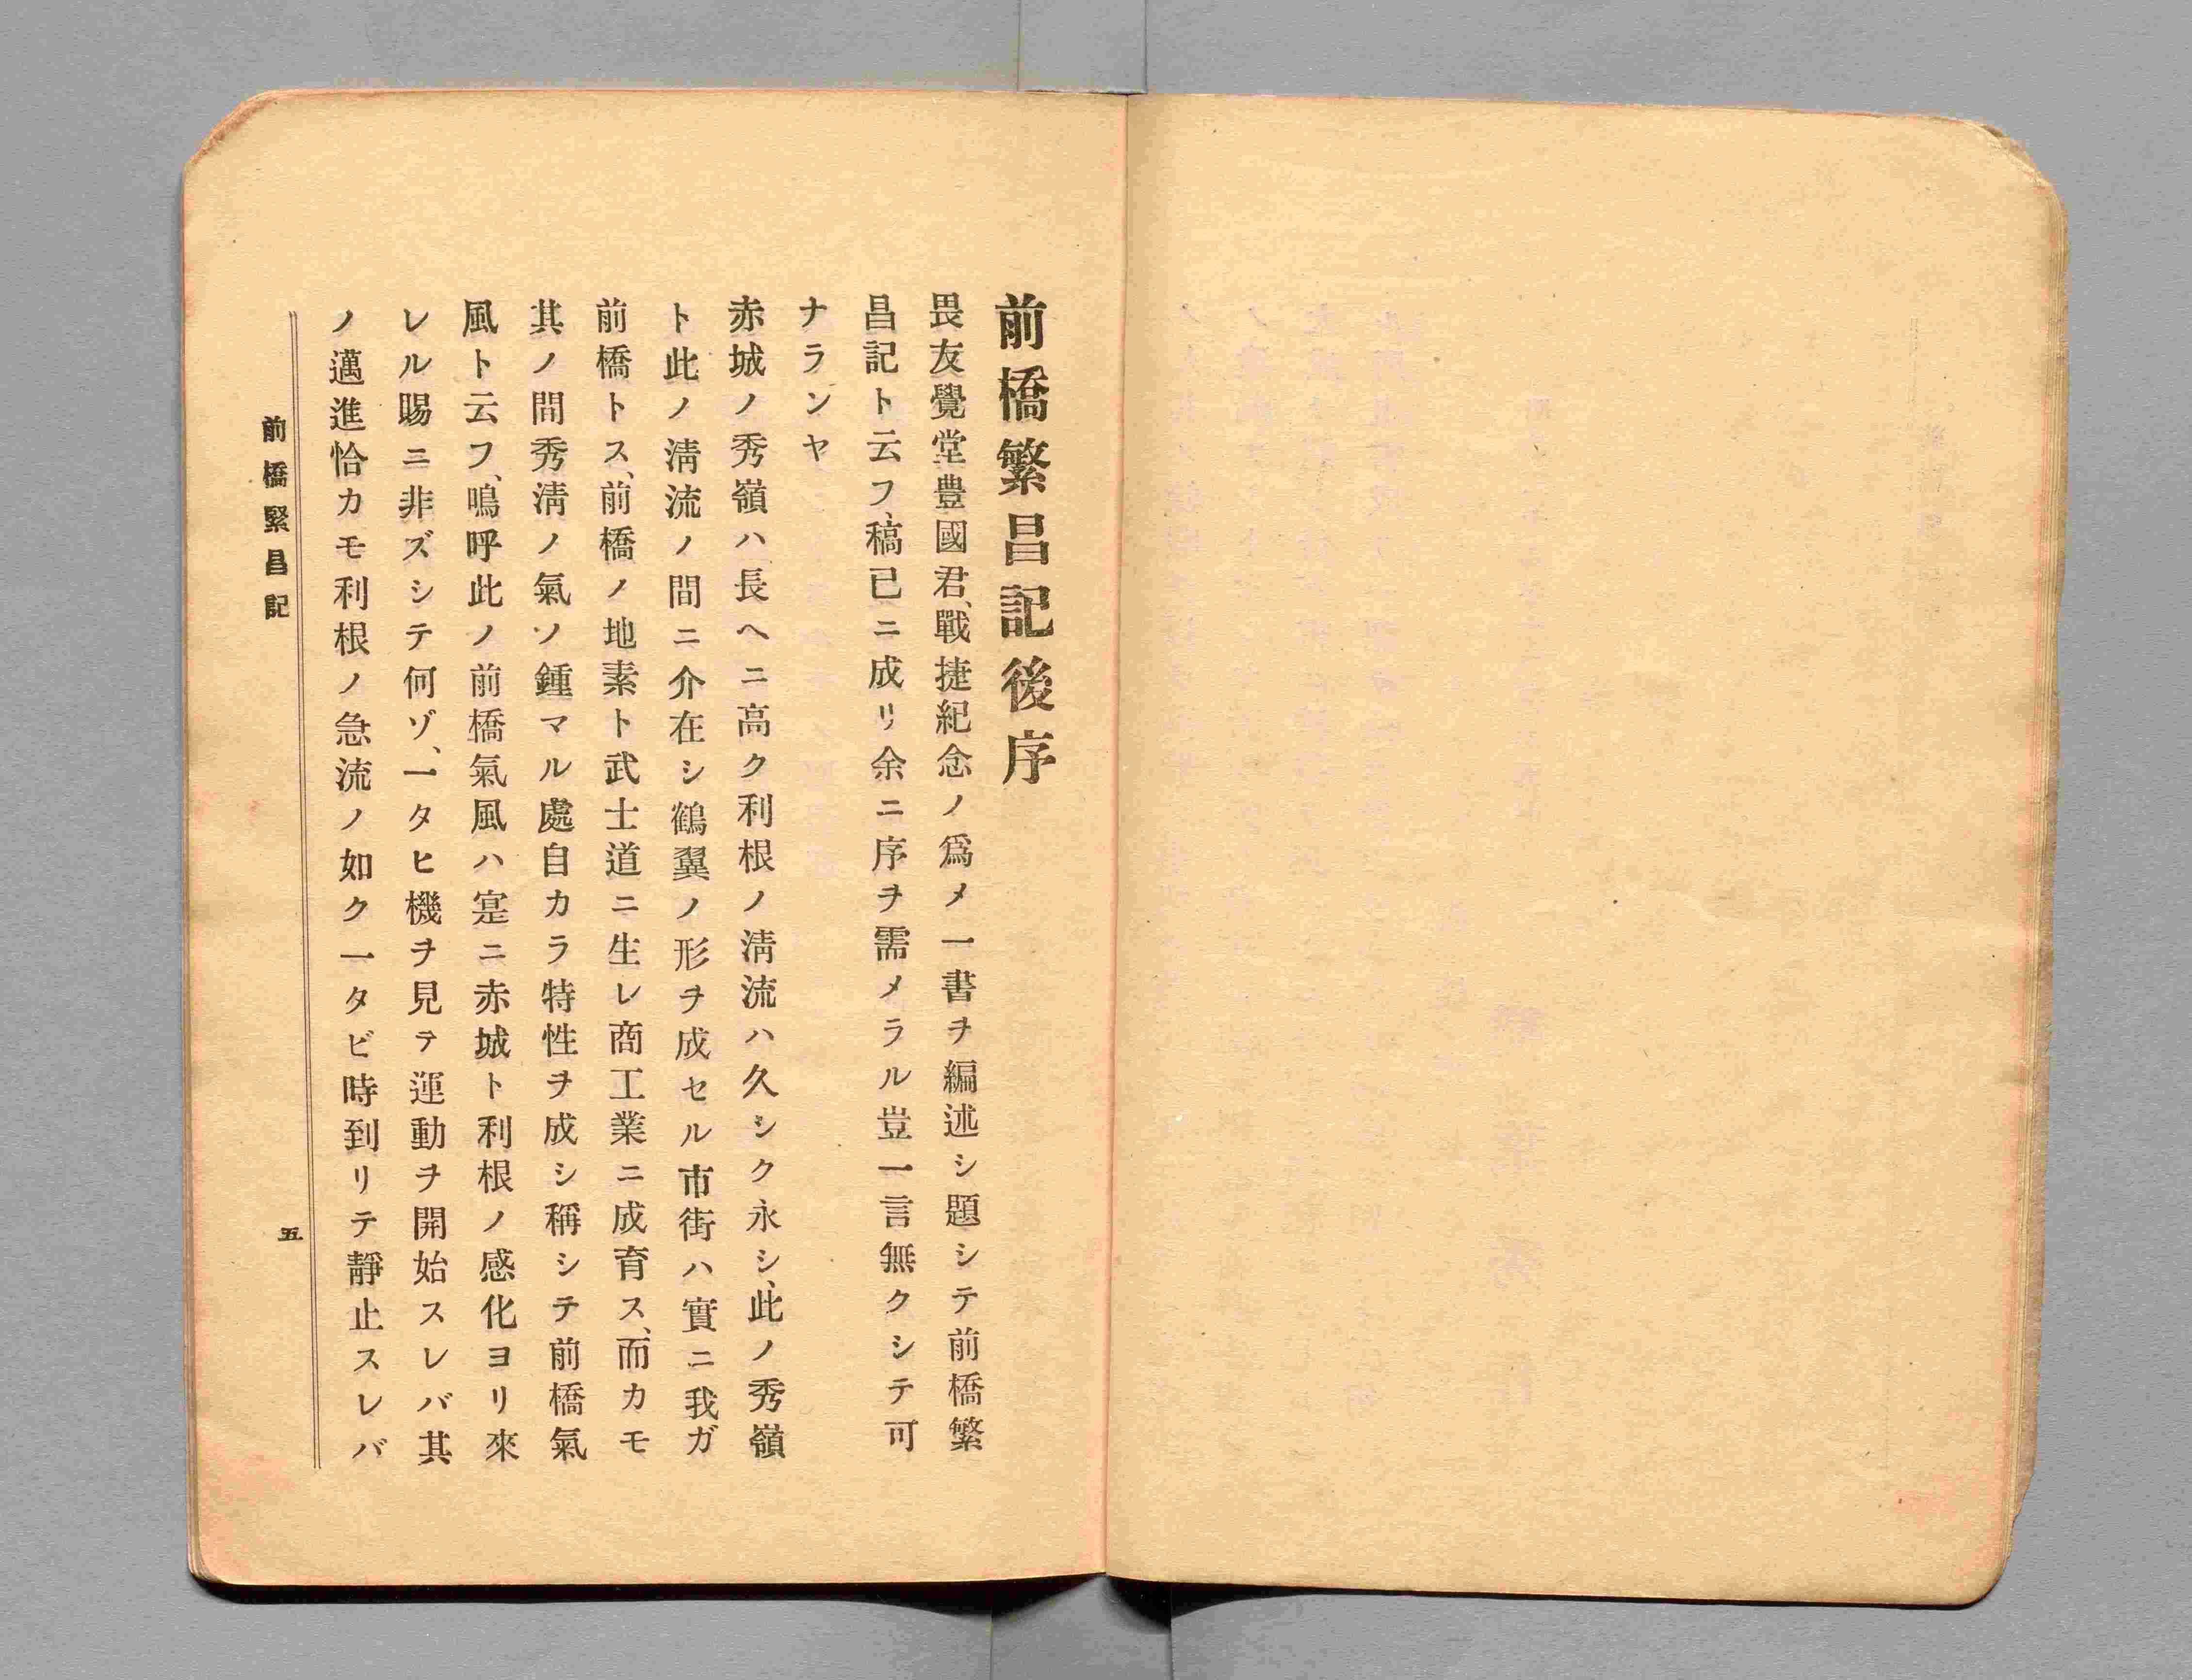 前橋繁昌記後序
畏友覺堂豊國君、戰捷紀念ノ爲メ一書ヲ編述シ題シテ前橋繁
昌記ト云フ、稿已ニ成リ余ニ序ヲ需メラル豈一言無クシテ可
ナランヤ
赤城ノ秀嶺ハ長ヘニ高ク利根ノ淸流ハ久シク永シ、此ノ秀嶺
ト此ノ淸流ノ間ニ介在シ鶴翼ノ形ヲ成セル市街ハ實ニ我ガ
前橋トス、前橋ノ地素ト武士道ニ生レ商工業ニ成育ス、而カモ
其ノ間秀淸ノ氣ソ鍾マル處自カラ特性ヲ成シ稱シテ前橋氣
風ト云フ、嗚呼此ノ前橋氣風ハ寔ニ赤城ト利根ノ感化ヨリ來
レル賜ニ非ズシテ何ゾ、一タヒ機ヲ見テ運動ヲ開始スレバ其
ノ邁進恰カモ利根ノ急流ノ如ク一タビ時到リテ靜止スレバ
前橋緊昌記
五